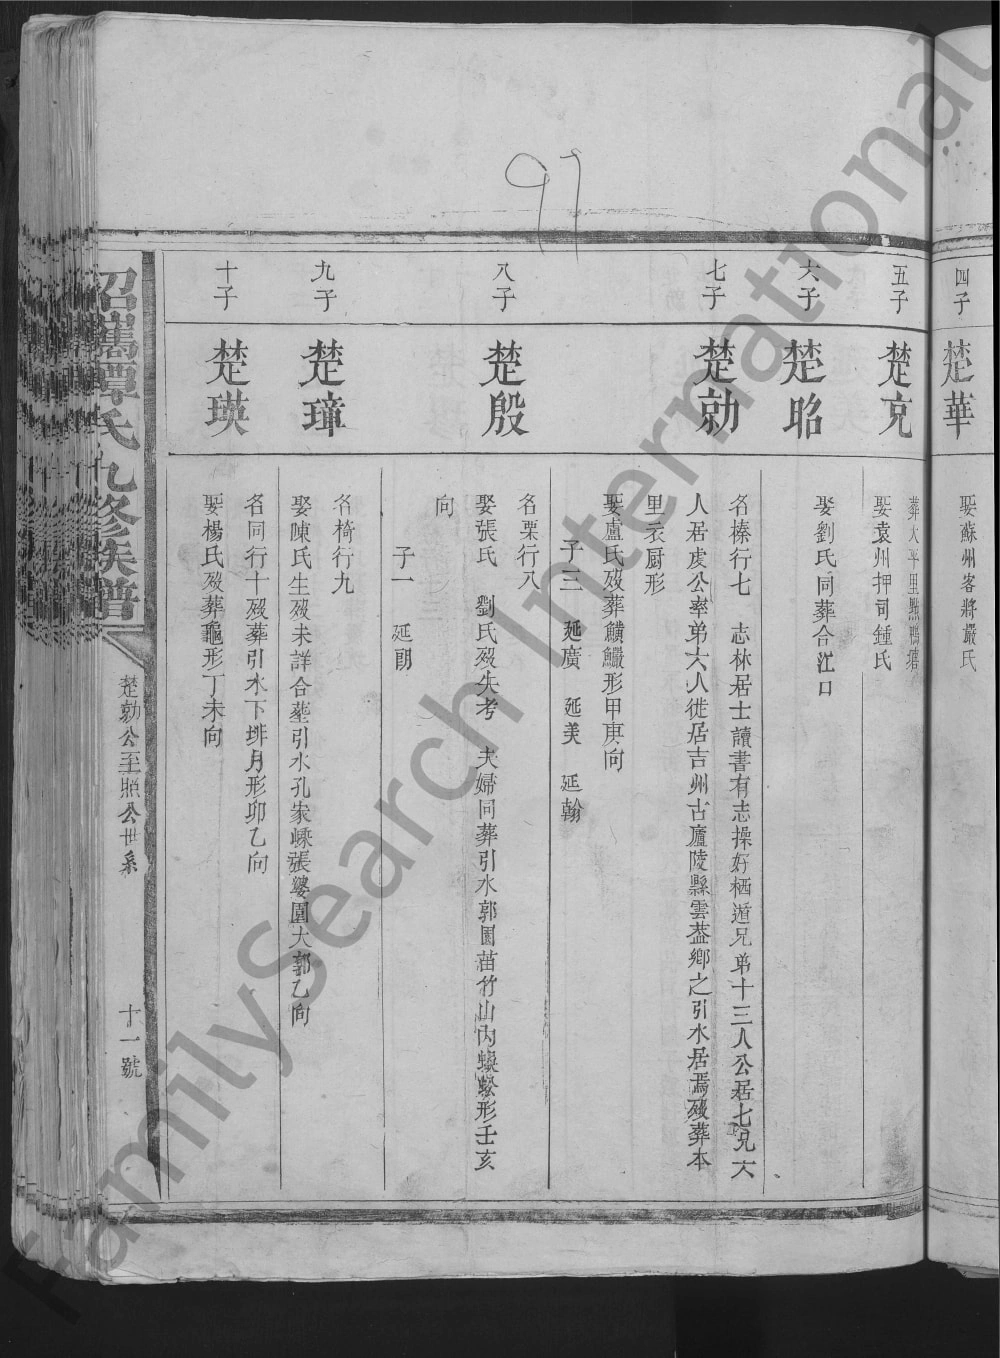 97
四子
楚華
娶蘇州客將嚴氏
五子
楚克
葬太平里點鴨塘
娶袁州押司鍾氏
六子
楚昭
娶劉氏同葬合江口
七子
楚勍
名搸行七 志林居士讀書有志操好栖遁兄弟十三人公居七兄六
人居虔公率弟六人徙居吉州古廬陵縣雲葢鄉之引水居焉歿葬本
里衣厨形
娶盧氏歿葬鱑鱺形甲庚向
子三 延廣 延美 延翰
八子
楚殷
名栗行八
娶張氏 劉氏歿失考 夫婦同葬引水郭園苗竹山內螈螇形壬亥
向
子一 延朗
九子
楚璋
名椅行九
娶陳氏生歿未詳合塟引水孔家嵊張婆園大郭乙向
十子
楚瑛
名同行十歿葬引水下排月形卯乙向
娶楊氏歿葬龜形丁未向
氏九修族譜
楚勍公至照公世系
十一號
FamilySearch International